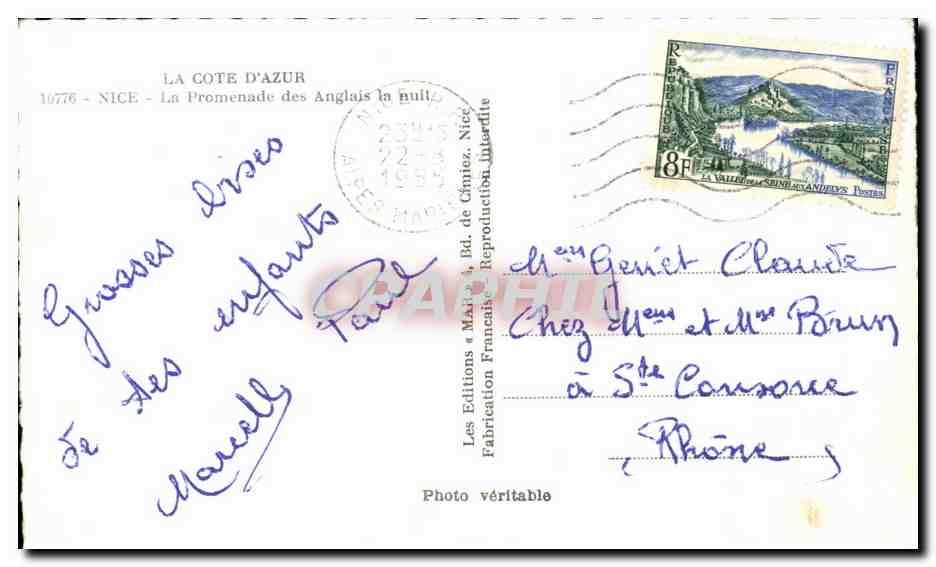 LA COTE D'AZUR
10776 - NICE - La Promenade des Anglais la nuit
Grosses bises
de tes enfants
Marcelle Paul
Photo véritable
Les Editions « MAR » 4, Bd. de Cimiez. Nice
Fabrication Française - Reproduction Interdite
NICE
22-8
1955
ALPES MARITIMES
REPUBLIQUE FRANÇAISE
8F
LA VALLÉE DE LA SEINE AUX ANDELYS POSTES
Meur Genet Claude
Chez Meur et Mme Brun
à Ste Consorce
Rhône
CPAPHIL